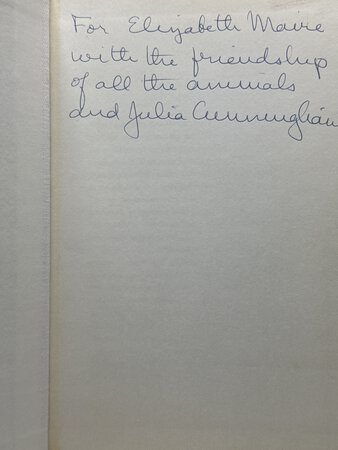 For Elizabeth Maire
with the friendship
of all the animals
and Julia Cunningham